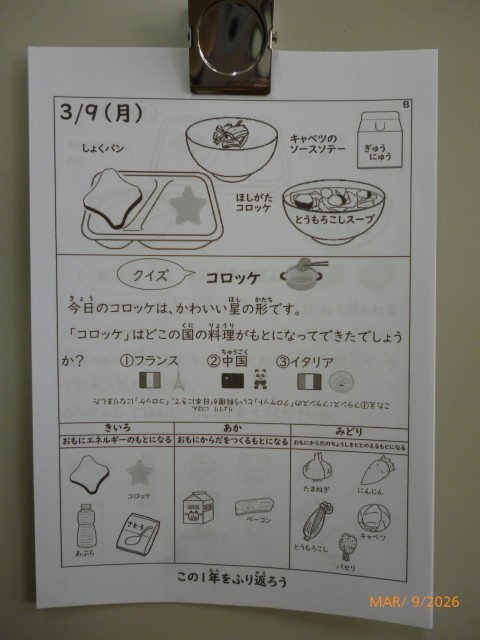 3/9(月)
B
しょくパン
キャベツの
ソースソテー
ぎゅう
にゅう
ほしがた
コロッケ
とうもろこしスープ
クイズ
コロッケ
今日のコロッケは、かわいい星の形です。
「コロッケ」はどこの国の料理がもとになってできたでしょう
か? ①フランス ②中国 ③イタリア
こたえ①フランス:フランスの「クロケット」という料理が日本にきて、「コロッケ」になりました
きいろ
おもにエネルギーのもとになる
あか
おもにからだをつくるもとになる
みどり
おもにからだのちょうしをととのえるもとになる
コロッケ
あぶら
さとう
ベーコン
たまねぎ
にんじん
とうもろこし
キャベツ
パセリ
この1年をふり返ろう
MAR/ 9/2026